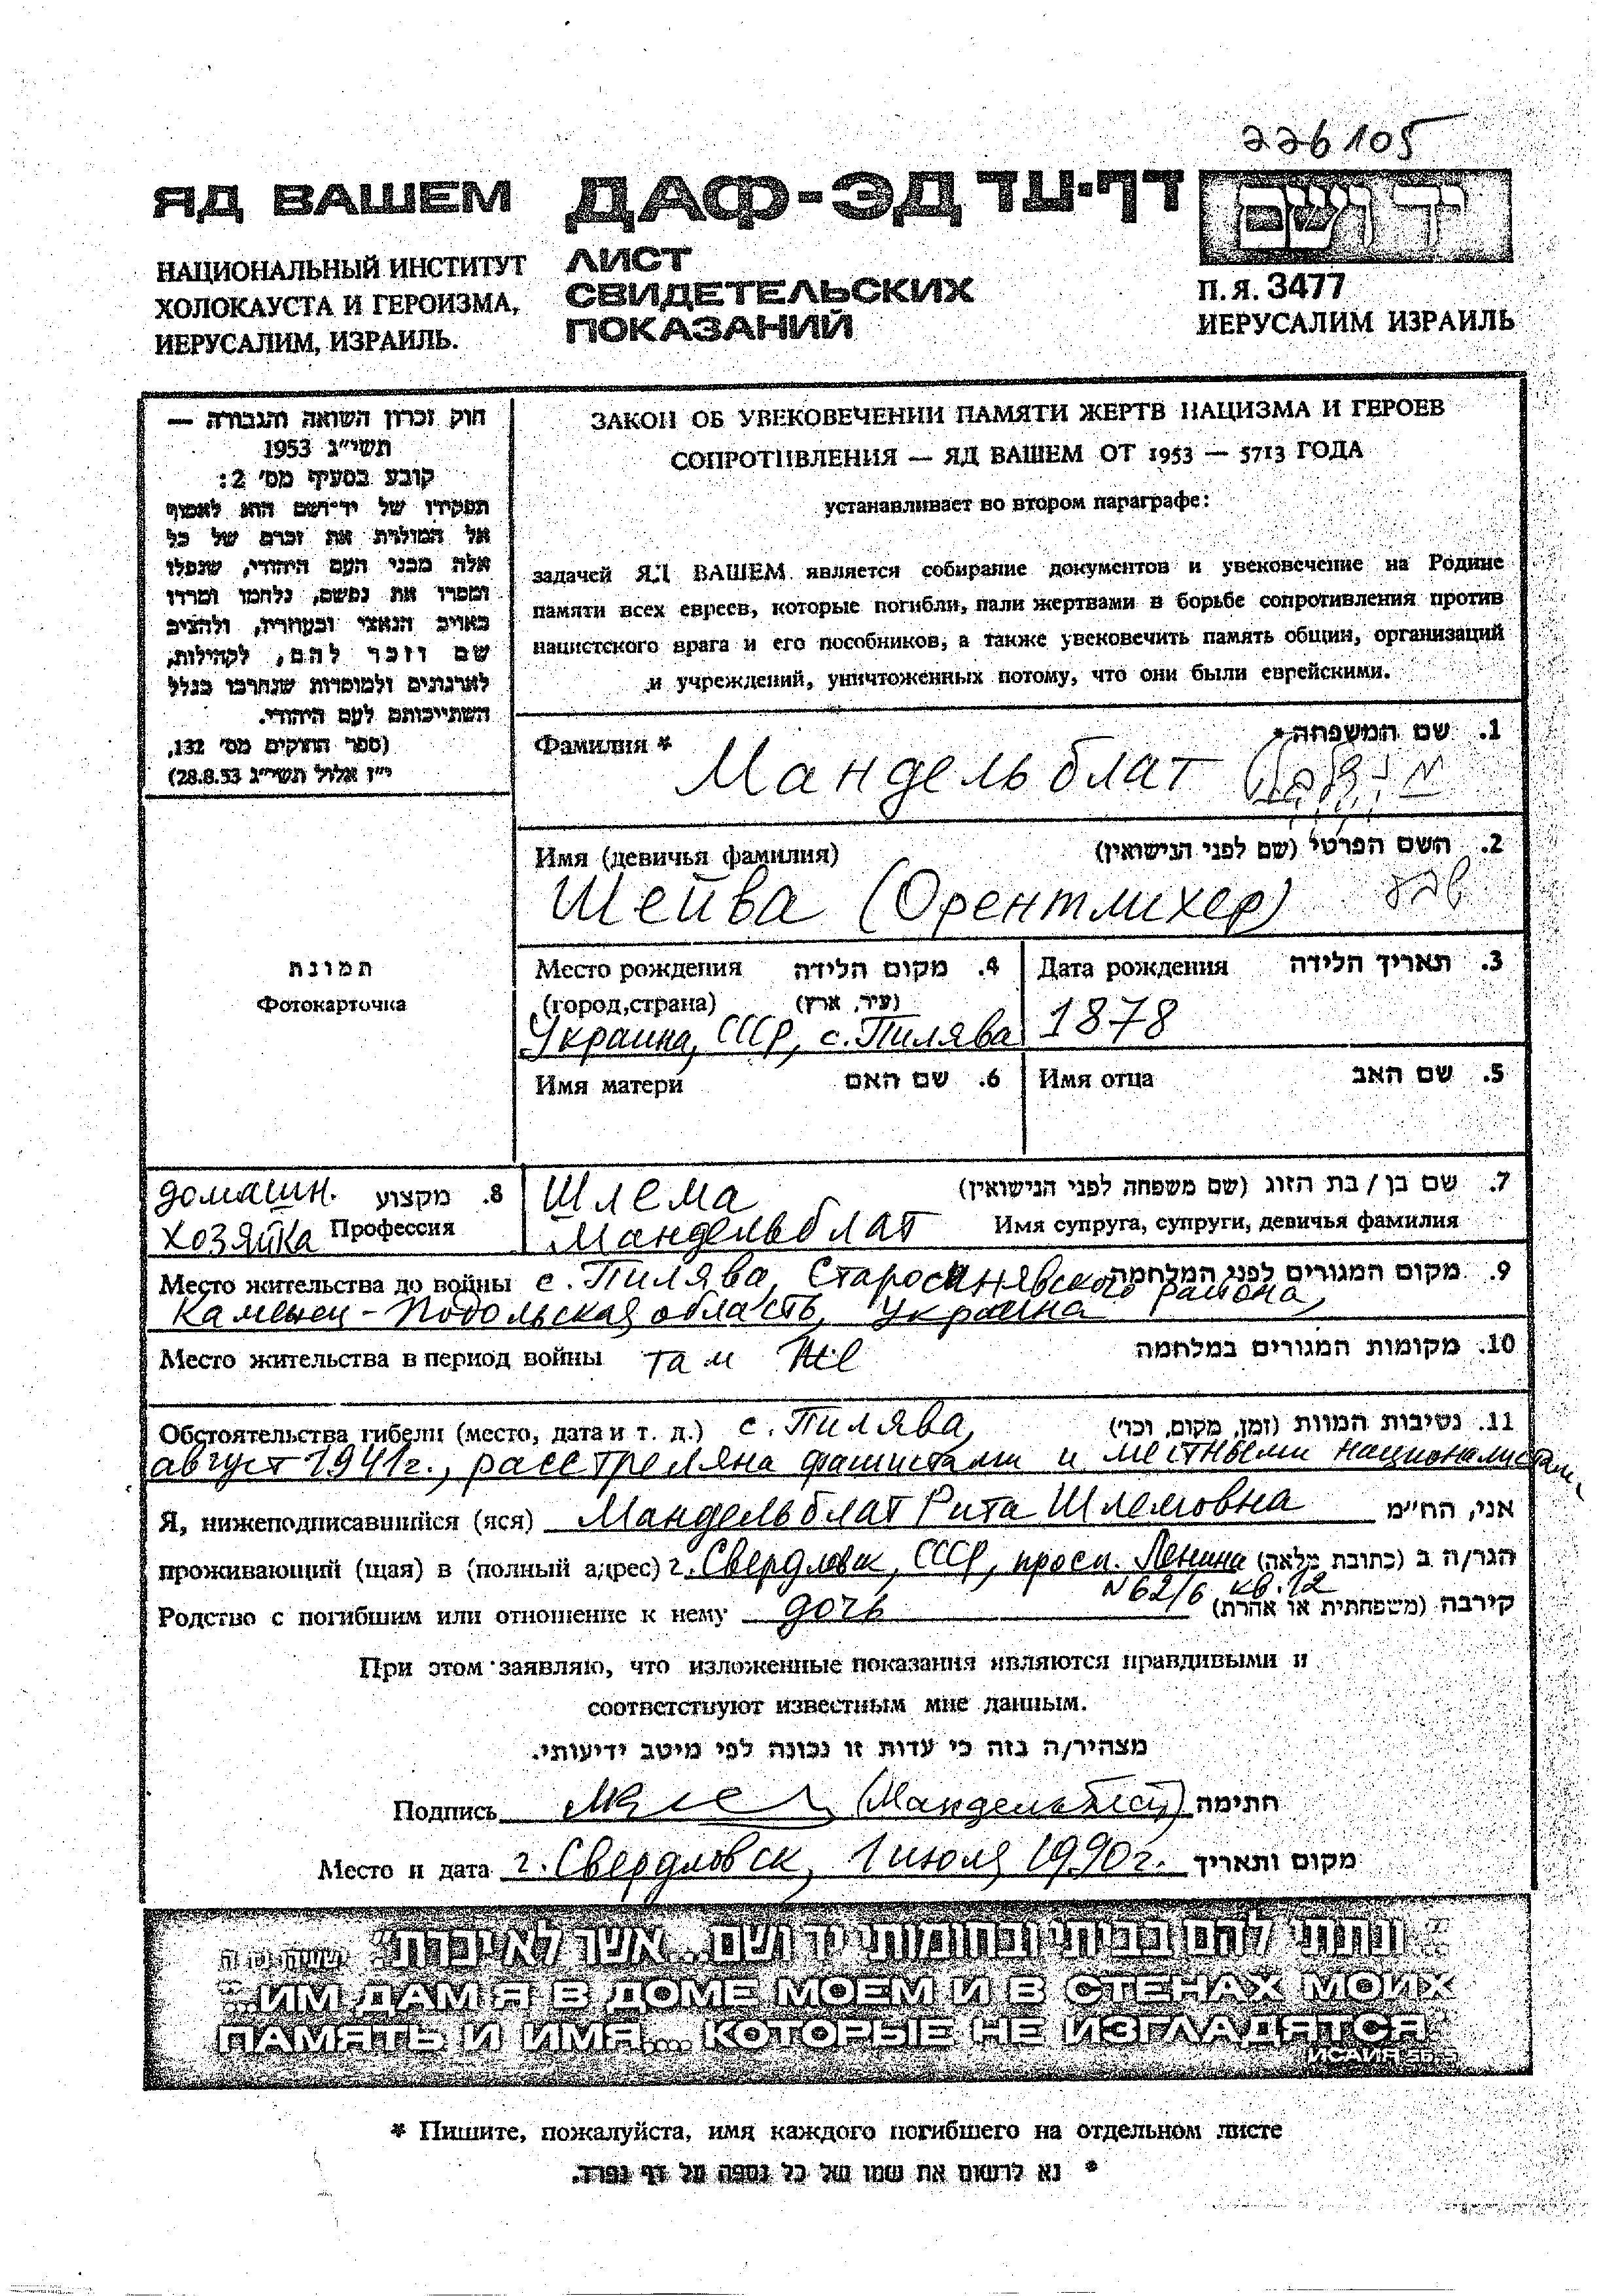 226105
ЯД ВАШЕМ
НАЦИОНАЛЬНЫЙ ИНСТИТУТ
ХОЛОКАУСТА И ГЕРОИЗМА,
ИЕРУСАЛИМ, ИЗРАИЛЬ.
ДАФ-ЭД דף-עד
ЛИСТ
СВИДЕТЕЛЬСКИХ
ПОКАЗАНИЙ
יד ושם
П.Я. 3477
ИЕРУСАЛИМ ИЗРАИЛЬ
חוק זכרון השואה והגבורה —
תשי״ג 1953
קובע בסעיף מס׳ 2:
תפקידו של יד-ושם הוא לאסוף
אל המולדת את זכרם של כל
אלה מבני העם היהודי, שנפלו
ומסרו את נפשם, נלחמו ומרדו
באויב הנאצי ובעוזריו, ולהציב
שם וזכר להם, לקהילות,
לארגונים ולמוסדות שנחרבו בגלל
השתייכותם לעם היהודי.
(ספר החוקים מס׳ 132,
י״ז אלול תשי״ג 28.8.53)
ЗАКОН ОБ УВЕКОВЕЧЕНИИ ПАМЯТИ ЖЕРТВ НАЦИЗМА И ГЕРОЕВ
СОПРОТИВЛЕНИЯ — ЯД ВАШЕМ ОТ 1953 — 5713 ГОДА
устанавливает во втором параграфе:
задачей ЯД ВАШЕМ является собирание документов и увековечение на Родине
памяти всех евреев, которые погибли, пали жертвами в борьбе сопротивления против
нацистского врага и его пособников, а также увековечить память общин, организаций
и учреждений, уничтоженных потому, что они были еврейскими.
Фамилия * 1. שם המשפחה *
Мандельблат
Имя (девичья фамилия) 2. השם הפרטי (שם לפני הנישואין)
Шейва (Орентлихер)
תמונת
Фотокарточка
Место рождения 4. מקום הלידה
(город,страна) (עיר, ארץ)
Украина, СССР, с. Пилява
Дата рождения 3. תאריך הלידה
1878
Имя матери 6. שם האם
Имя отца 5. שם האב
домашн. 8. מקצוע
хозяйка Профессия
Шлема 7. שם בן / בת הזוג (שם משפחה לפני הנישואין)
Мандельблат Имя супруга, супруги, девичья фамилия
Место жительства до войны с. Пилява, Старосинявского района, 9. מקום המגורים לפני המלחמה
Каменец-Подольская область, Украина
Место жительства в период войны там же 10. מקומות המגורים במלחמה
Обстоятельства гибели (место, дата и т. д.) с. Пилява, 11. נסיבות המוות (זמן, מקום, וכו׳)
август 1941г., расстреляна фашистами и местными националистами.
Я, нижеподписавшийся (яся) Мандельблат Рита Шлемовна אני, הח״מ
проживающий (щая) в (полный адрес) г. Свердловск, СССР, просп. Ленина הגר/ה ב (כתובת מלאה)
N 62/6 кв. 12
Родство с погибшим или отношение к нему дочь קירבה (משפחתית או אחרת)
При этом заявляю, что изложенные показания являются правдивыми и
соответствуют известным мне данным.
מצהיר/ה בזה כי עדות זו נכונה לפי מיטב ידיעותי.
Подпись (Мандельблат) חתימה
Место и дата г. Свердловск, 1 июля 1990г. מקום ותאריך
״ונתתי להם בביתי ובחומותי יד ושם... אשר לא יכרת״. ישעיהו נו ה
"...ИМ ДАМ Я В ДОМЕ МОЕМ И В СТЕНАХ МОИХ
ПАМЯТЬ И ИМЯ,... КОТОРЫЕ НЕ ИЗГЛАДЯТСЯ"
ИСАИЯ 56,5
* Пишите, пожалуйста, имя каждого погибшего на отдельном листе
* נא לרשום את שמו של כל נספה על דף נפרד.